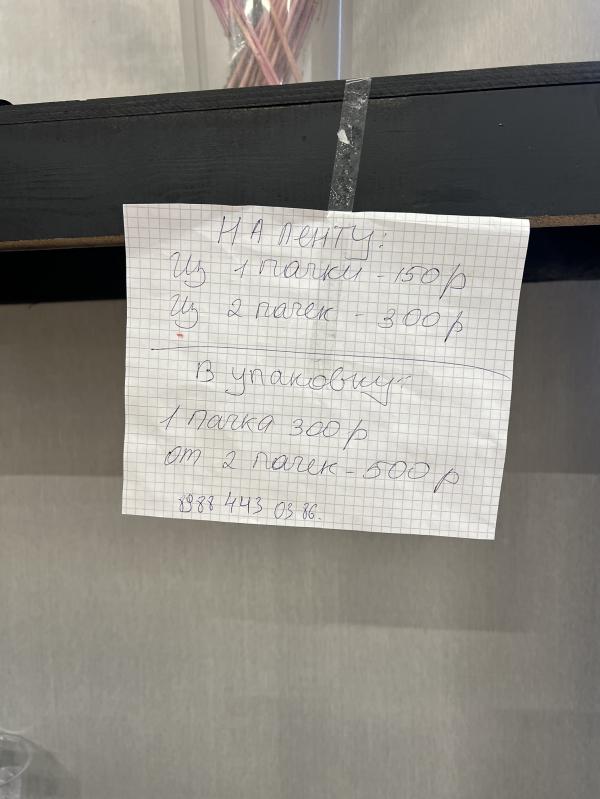 НА ЛЕНТУ:
Из 1 пачки - 150 р
Из 2 пачек - 300 р
В упаковку:
1 пачка 300 р
от 2 пачек - 500 р
8988 443 03 86.